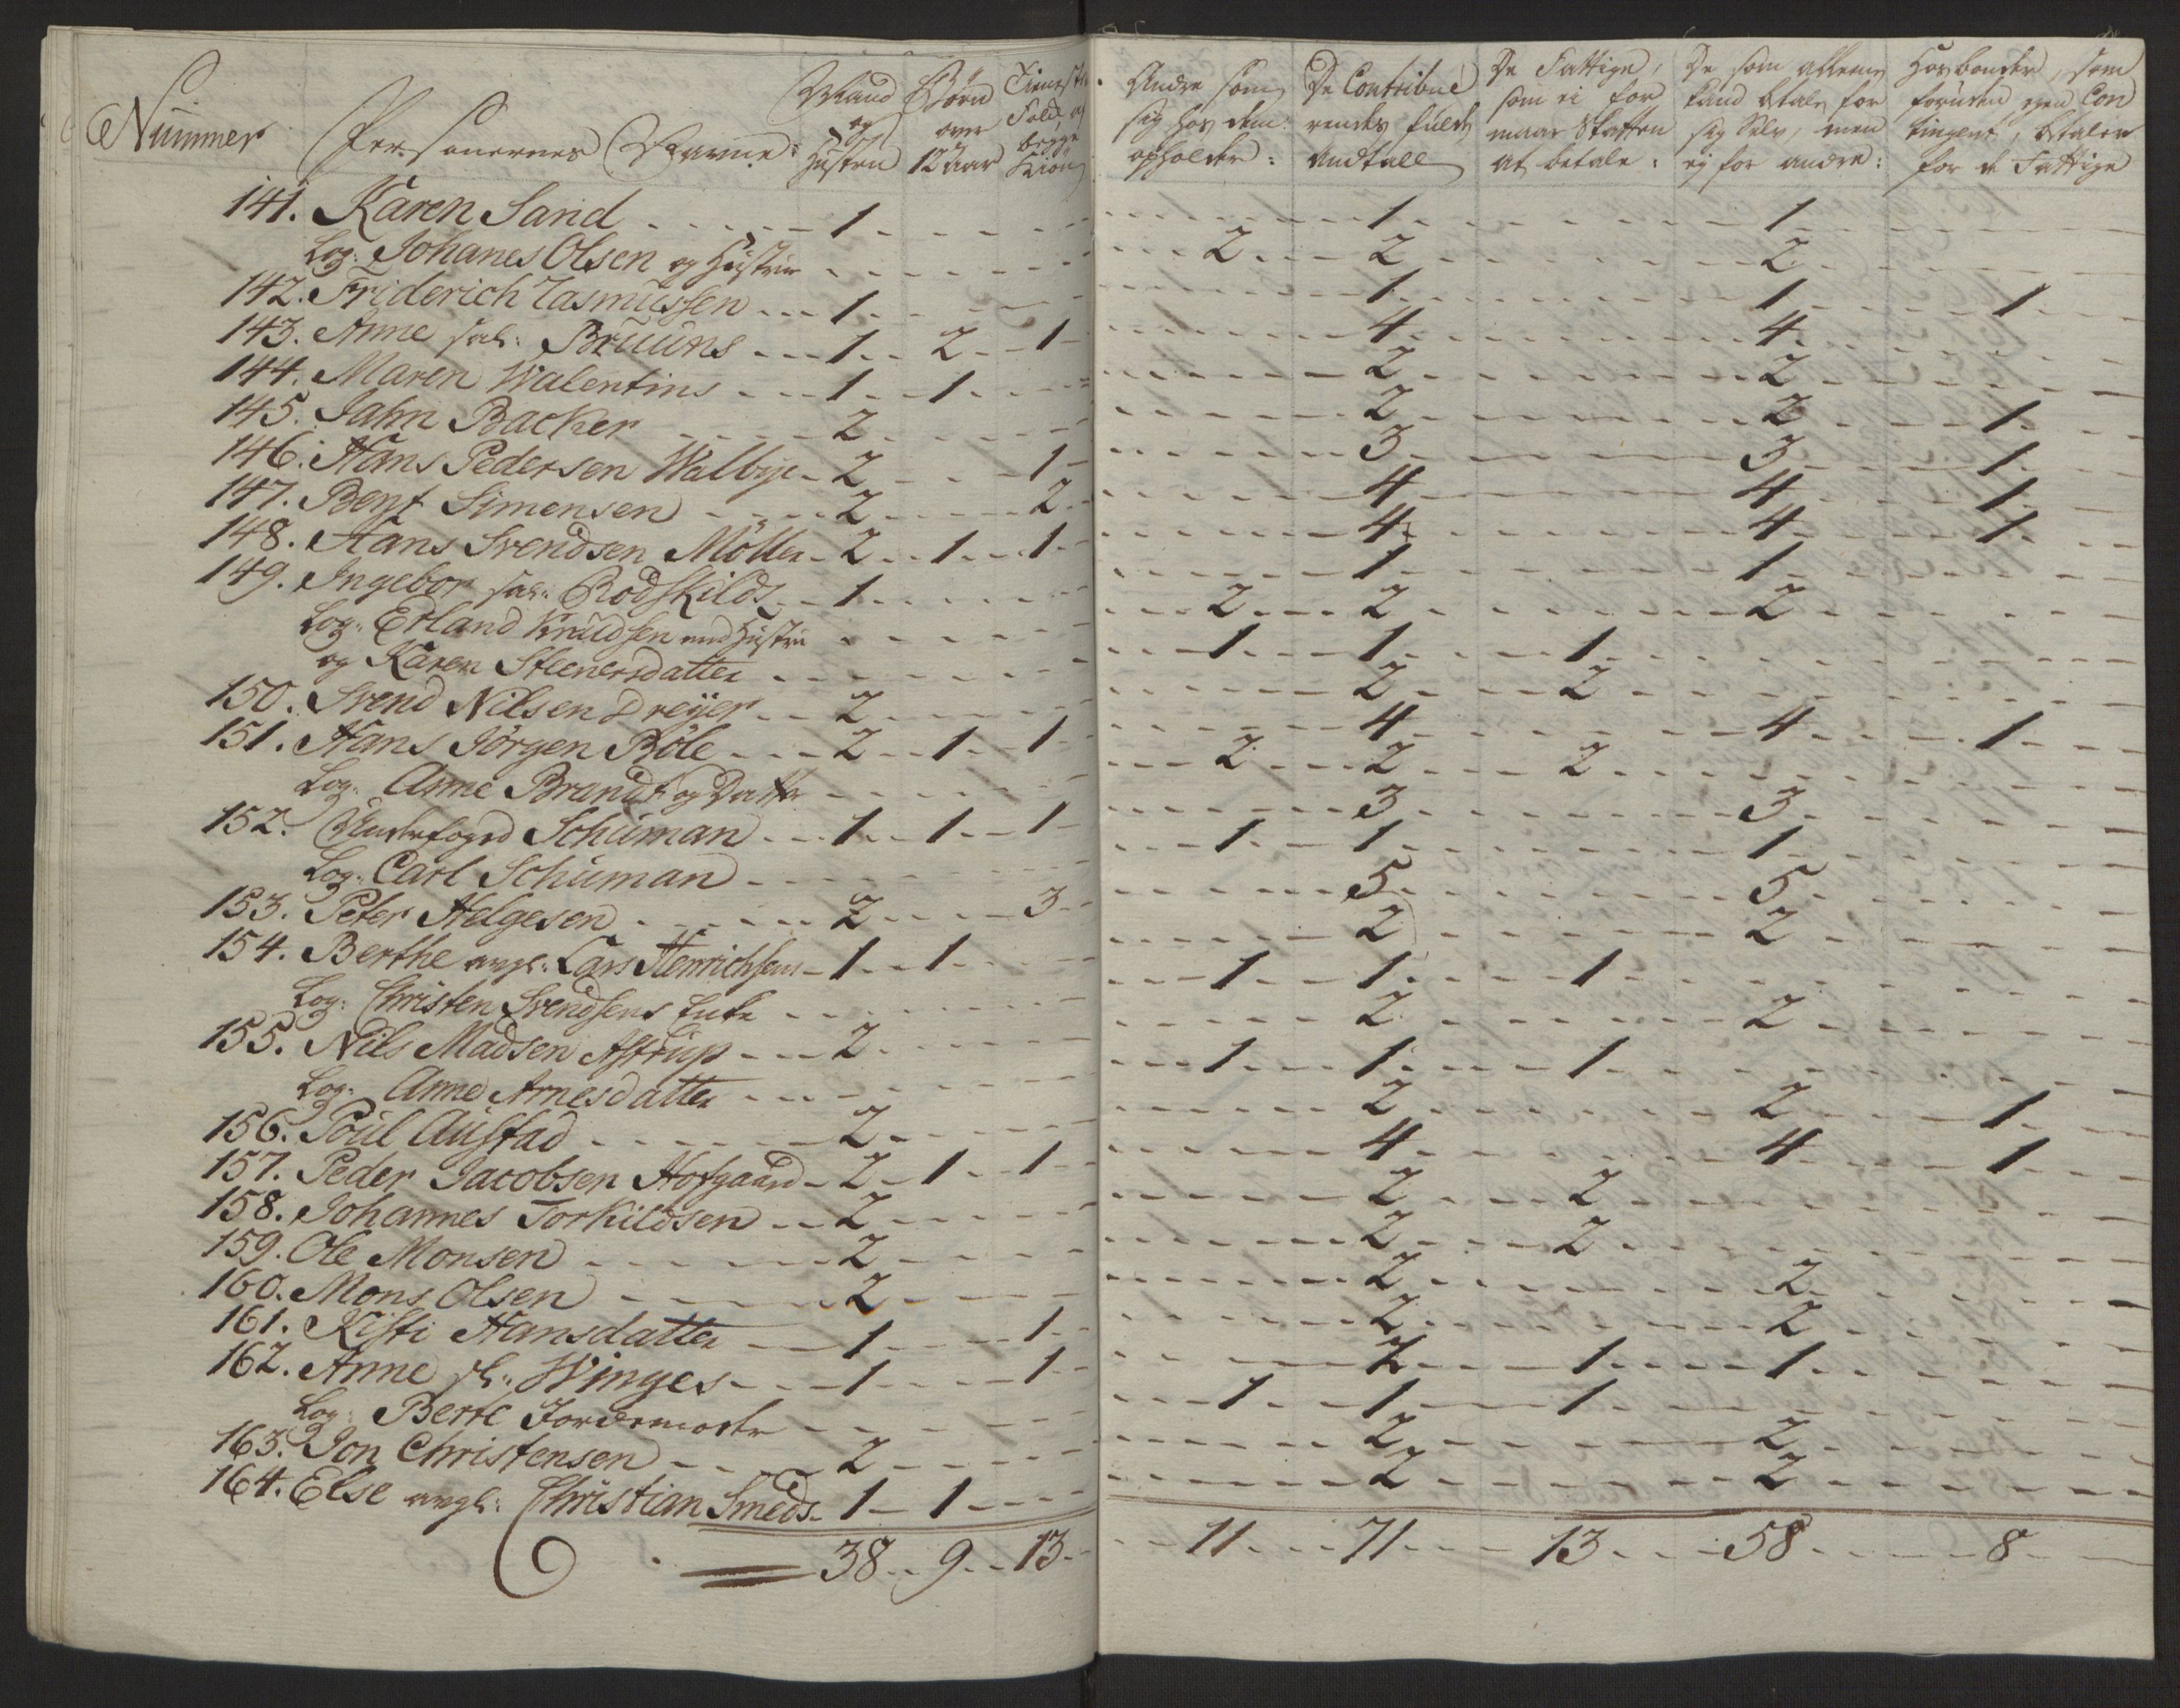 Nummer
Personernes Navne:
Mand og Hustru
Börn over 12 aar
Tieneste Folk, af begge Kiön
Andre som sig hos dem opholder:
De Contribuerendes fulde Andtall
De Fattige, som ei formaar Skatten at betale:
De som alleene kand betale for sig Selv, men ej for andre:
Hosbonder, som foruden egen Contingent, betaler for de Fattige
141. Karen Sand 1 1 1
Log: Johanes Olsen og Hustrue 2 2 2
142. Friderich Rasmussen 1 1 1 1
143. Anne sal: Bruuns 1 2 1 4 4
144. Maren Walentins 1 1 2 2
145. Jahn Backer 2 2 2 1
146. Hans Pedersen Walbye 2 1 3 3 1
147. Bent Simensen 2 2 4 4 1
148. Hans Svendsen Möller 2 1 1 4 4 1
149. Ingebor sal: Rodskilds 1 1 1
Log: Erland Knudsen med Hustru 2 2 2
og Karen Steenersdatter 1 1 1
150. Svend Nilsen Dreÿer 2 2 2
151. Hans Jörgen Röle 2 1 1 4 4 1
Log: Anne Brandt og Datter 2 2 2
152. Schuman 1 1 1 3 3
Log: Carl Schuman 1 1 1
153. Peter Helgesen 2 3 5 5
154. Berthe Lars Henrichsens 1 1 2 2
Log: Christen Svendsens Enke 1 1 1
155. Nils Madsen Astrup 2 2 2
Log: Anne Arnesdatter 1 1 1
156. Poul Austad 2 2 2 1
157. Peder Jacobsen Hofgaard 2 1 1 4 4 1
158. Johannes Torkildsen 2 2 2
159. Ole Monsen 2 2 2
160. Mons Olsen 2 2 2
161. Kisti Hansdatter 1 1 2 2
162. Anne sl: Winges 1 1 2 1 1
Log: Berte Jordemoder 1 1 1
163. Jon Christensen 2 2 2
164. Else Christian Smeds 1 1 2 2
38 9 13 11 71 13 58 8